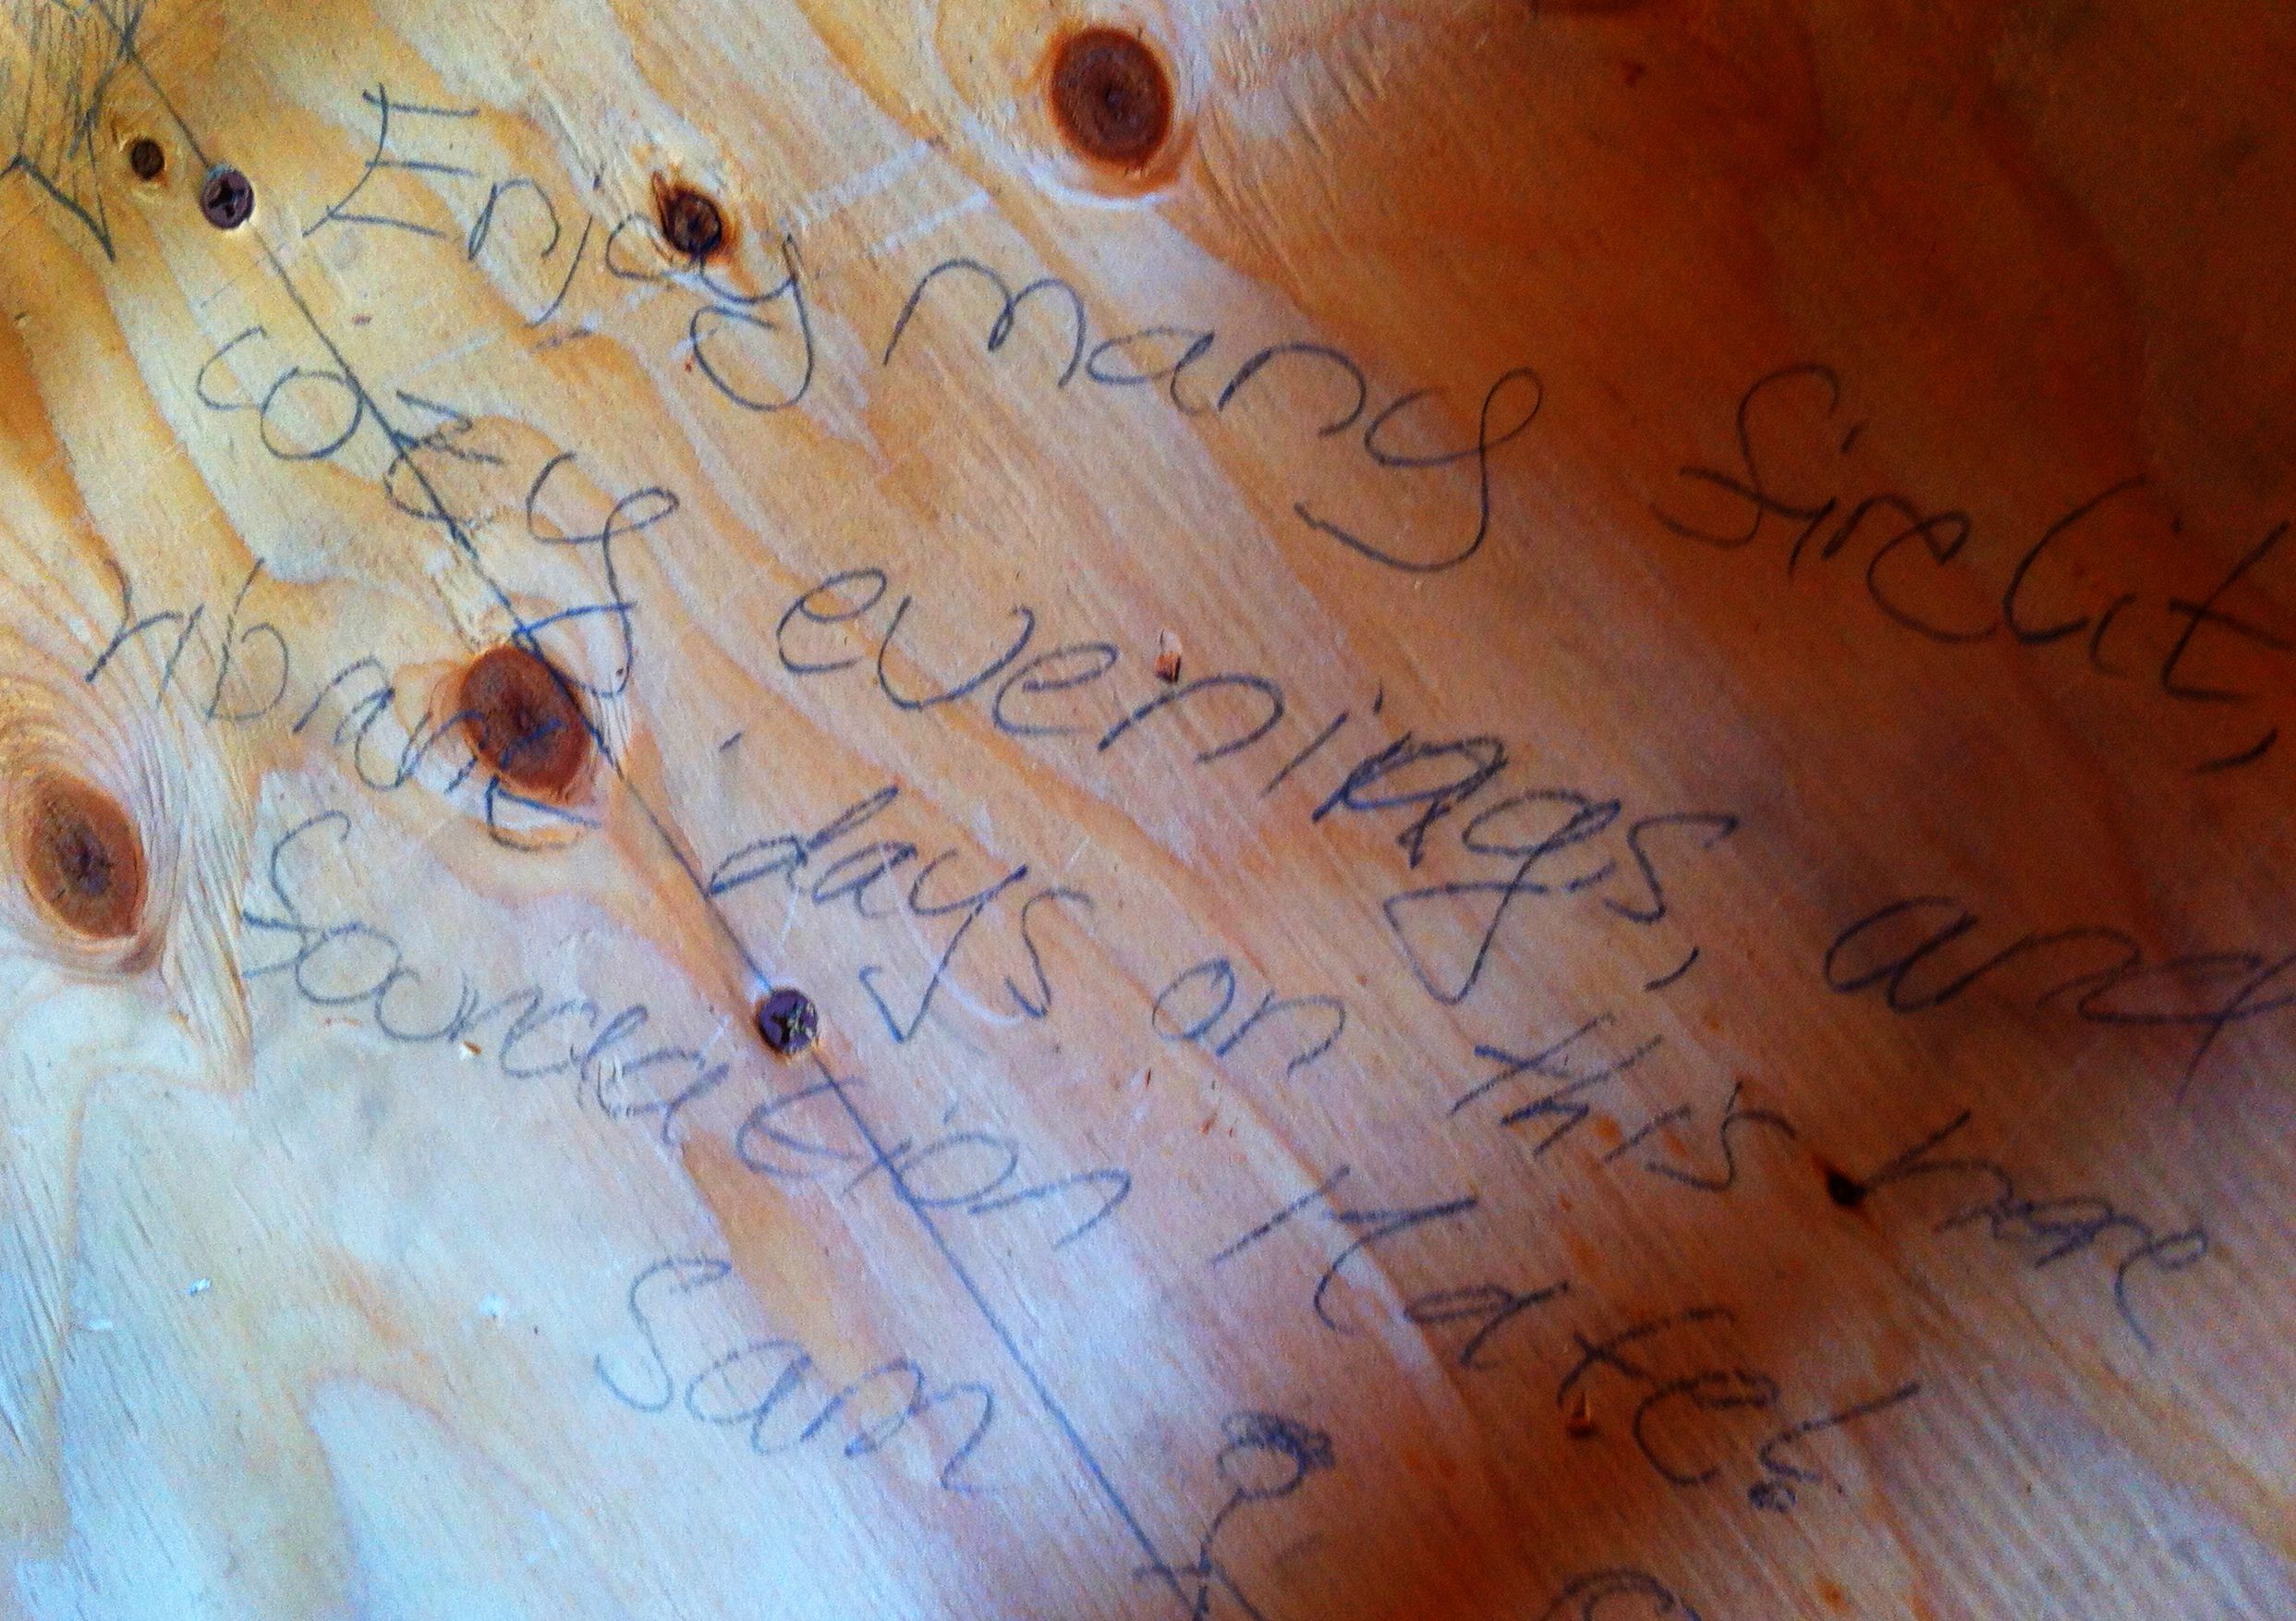 Enjoy many firelit,
cozy evenings, and
vibrant days on this here
Soundation
Sam